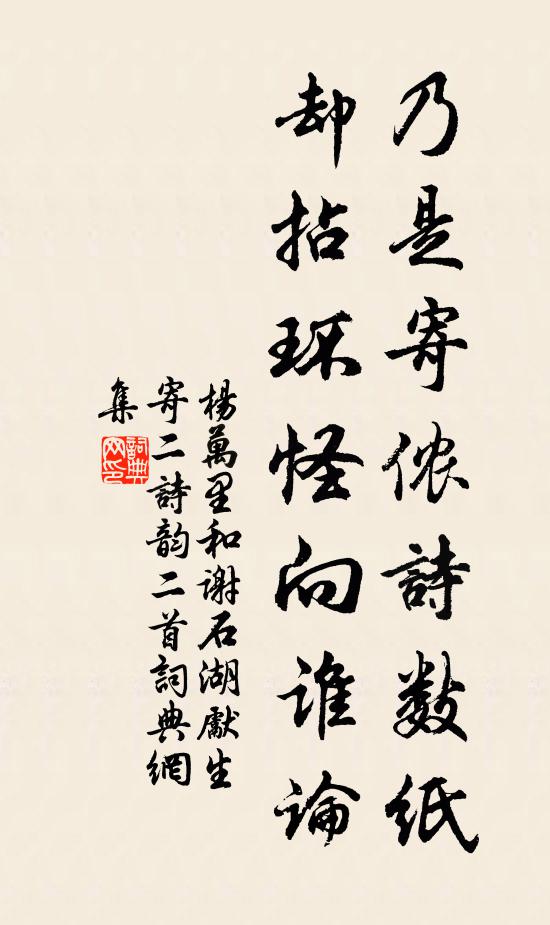 乃是寄侬詩数紙
却拈珎怪向谁論
楊萬里和谢石湖獻生
寄二詩韵二首詞典網
集
詞典網印